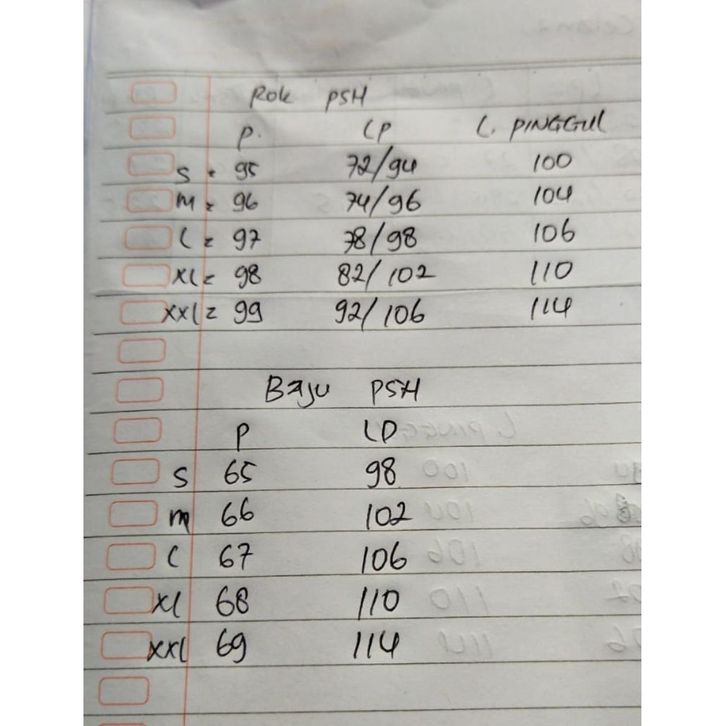 Rok PSH
P. LP L. PINGGUL
S = 95 72/94 100
M = 96 74/96 104
L = 97 78/98 106
XL = 98 82/102 110
XXL = 99 92/106 114
Baju PSH
P LD
S 65 98
M 66 102
L 67 106
XL 68 110
XXL 69 114